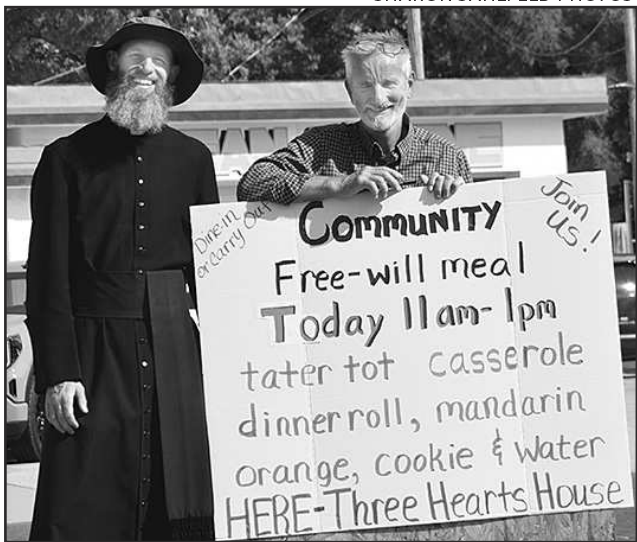 Dine-in
or carry Out
Join
Us!
COMMUNITY
Free-will meal
Today 11am-1pm
tater tot casserole
dinner roll, mandarin
orange, cookie & water
HERE-Three Hearts House